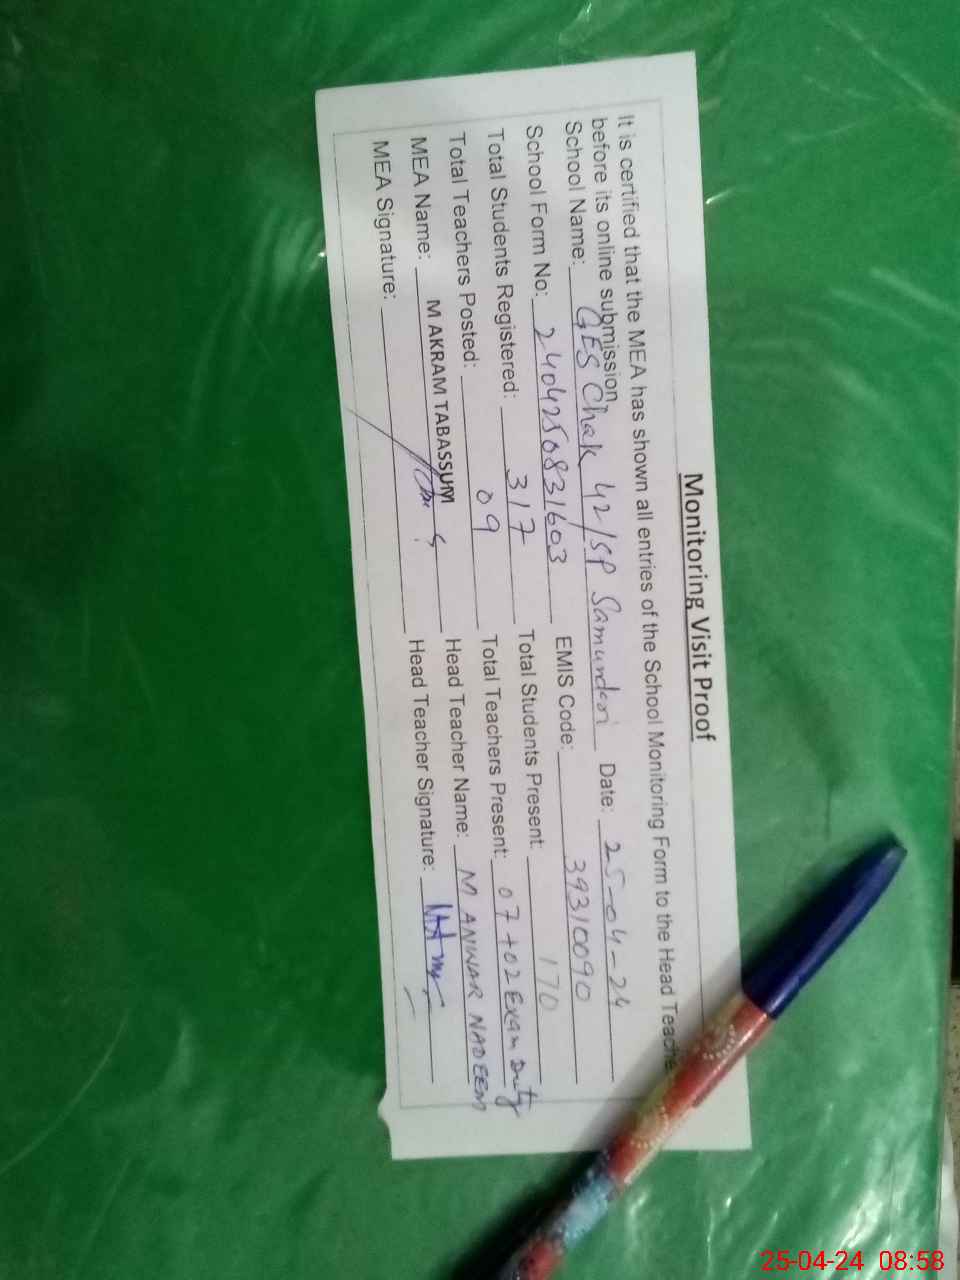 Monitoring Visit Proof
It is certified that the MEA has shown all entries of the School Monitoring Form to the Head Teache
before its online submission
School Name: GES Chak 42/SP Samundari Date: 25-04-24
School Form No: 2404250831603 EMIS Code: 39310090
Total Students Registered: 317 Total Students Present: 170
Total Teachers Posted: 09 Total Teachers Present: 07+02 Exam Duty
MEA Name: M AKRAM TABASSUM Head Teacher Name: M ANWAR NADEEM
MEA Signature: Head Teacher Signature:
25-04-24 08:58